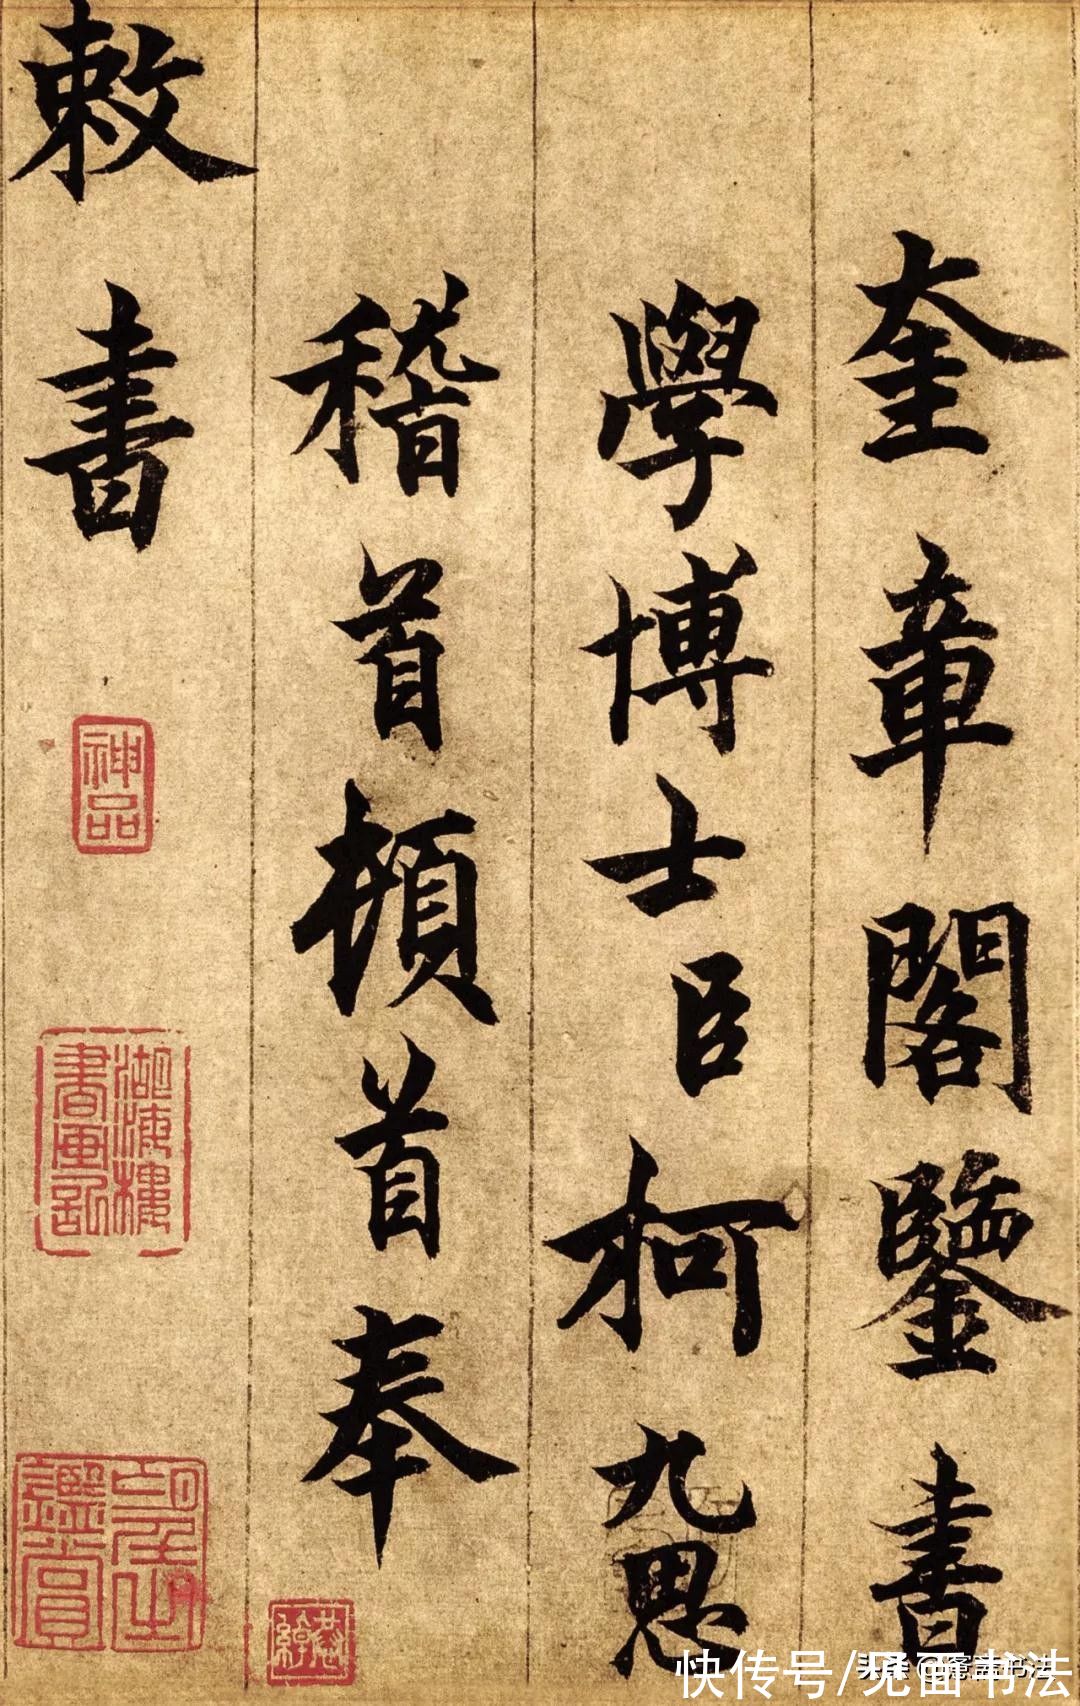 奎章閣鑒書
學博士臣柯九思
稽首頓首奉
敕書
神品
湖海樓
書畫記
鑑賞
快传号/见面书法